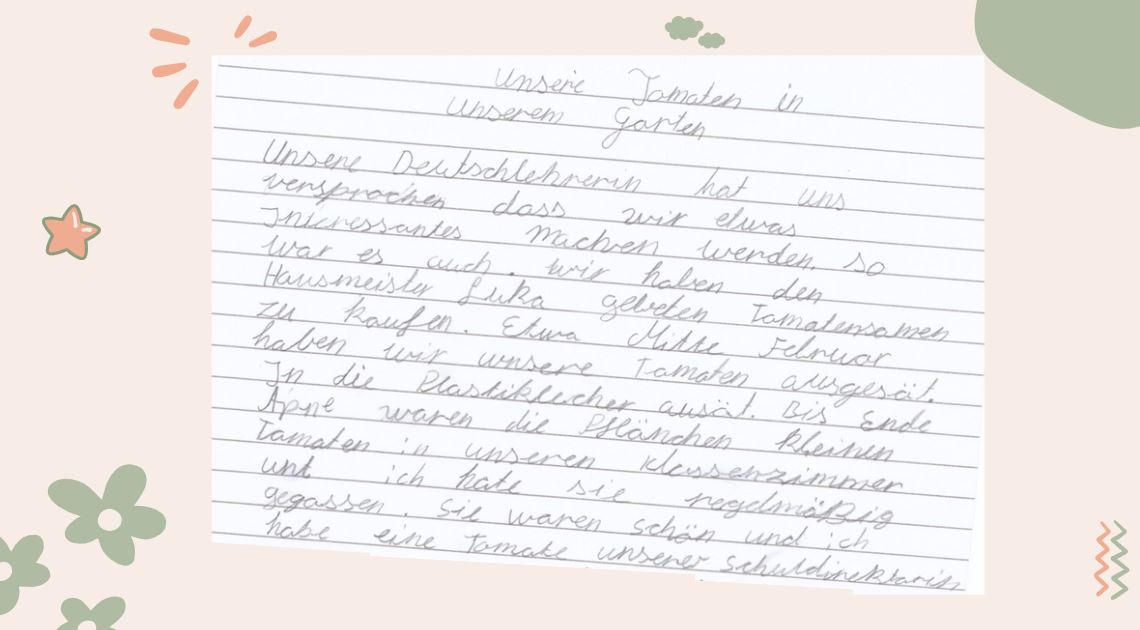 Unsere Tomaten in
Unserem Garten
Unsere Deutschlehrerin hat uns
versprochen dass wir etwas
Interessantes machen werden. so
war es auch. wir haben den
Hausmeister Luka gebeten Tomatensamen
zu kaufen. Etwa Mitte Februar
haben wir unsere Tomaten ausgesät.
In die Plastikbecher ausät. Bis Ende
waren die Pflänchen kleinen
Tomaten in unseren Klassenzimmer
unt ich hate sie regelmäßig
gegassen. Sie waren schön und ich
habe eine Tomate unserer schuldirektorin